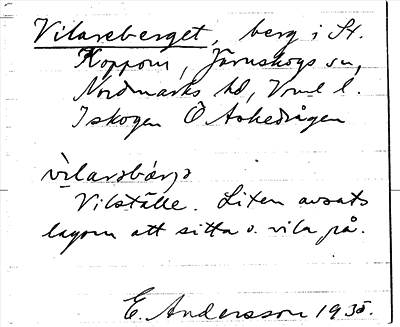 Vilareberget, berg i St.
Koppom, Järnskogs sn,
Nordmarks hd, Vrml l.
I skogen Ö Askedrågen
vìlarəbärjə
Vilställe. Liten avsats
lagom att sitta o. vila på.
E. Andersson 1935.